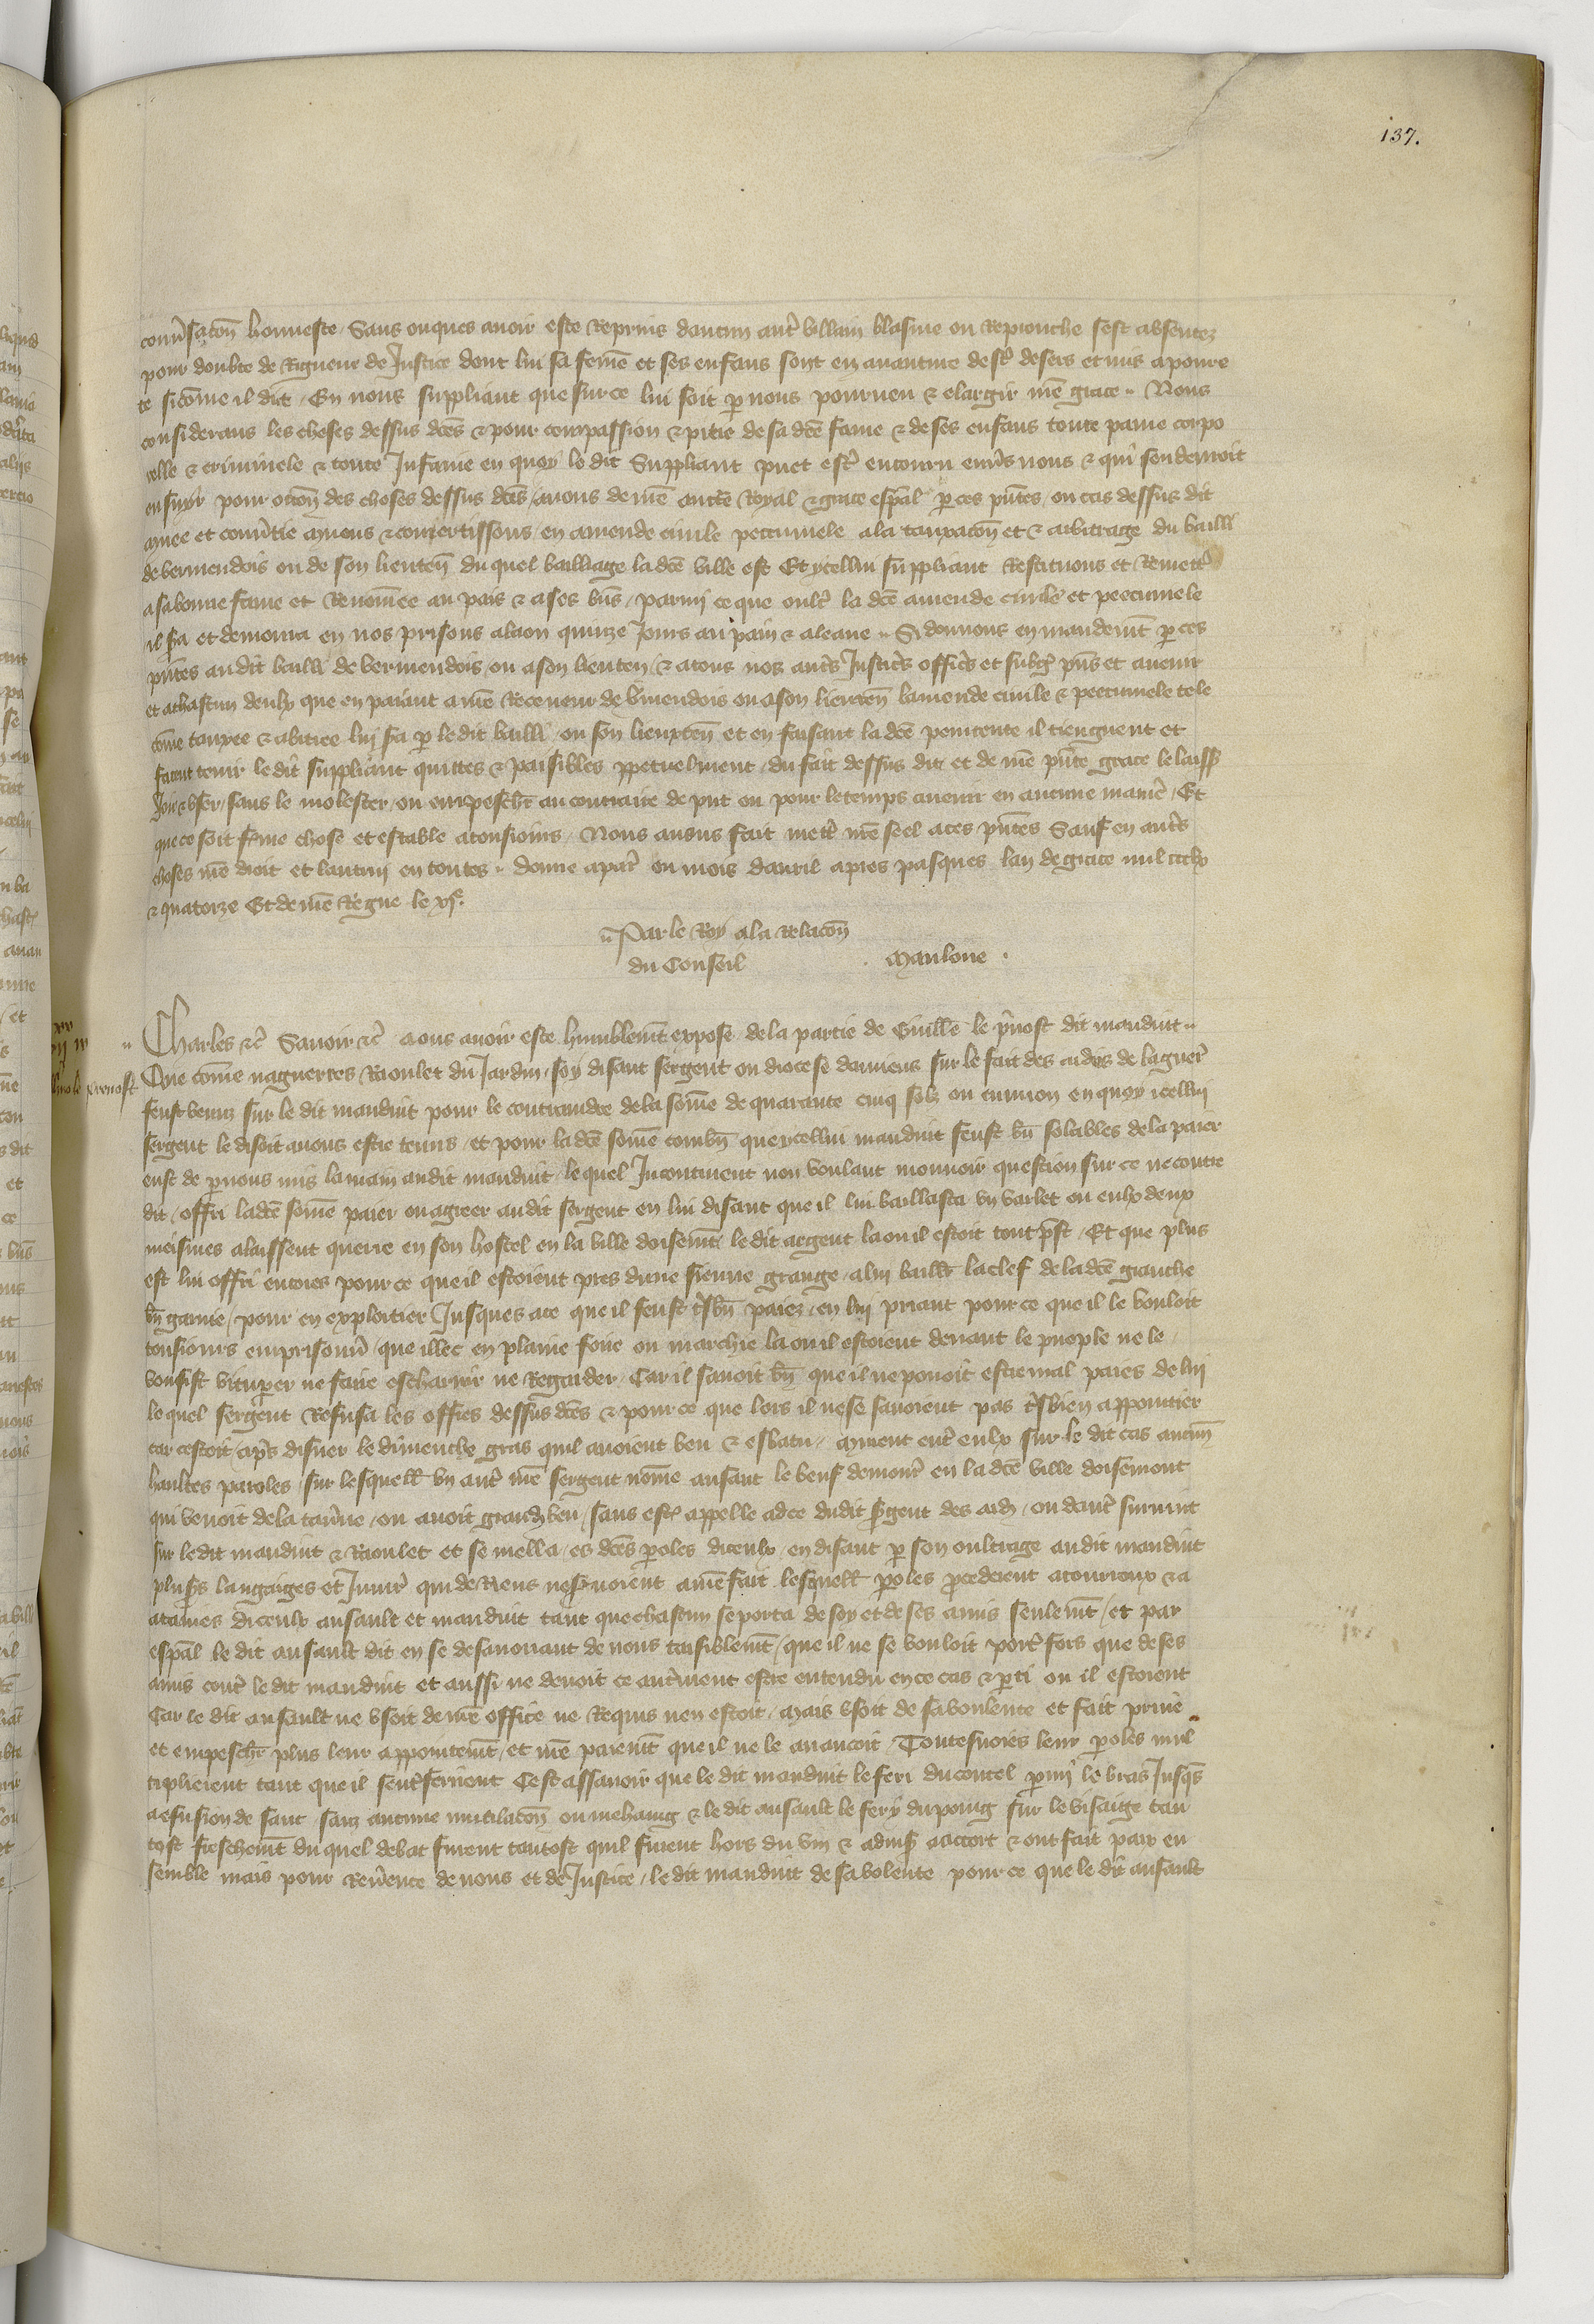 137.
conv̄sac̄on honneste Sans onques avoir este Reprins daucun autr̄ villain blasme ou Reprouche sest absentez
pour doubte de Rigueur de Justice dont lui sa femē et ses enfans sont en aventure destr̄ desers et mis a povre
te si cōme il dit / En nous suppliant que sur ce lui soit ꝑ nous pourveu & elargir nr̄e grace Nous
considerans les choses dessus dc̄es & pour compassion & pitie de sa dc̄e fame & de ses enfans toute paine corpo
relle & criminele & toute Infamie en quoy le dit Suppliant puet estr̄ encouru env̄s nous & qui sen devroit
ensuyr pour occōn des choses dessus dc̄es / avons de nr̄e auctē Royal & grace esp̄al ꝑ ces pn̄tes / ou cas dessus dit
muee et conv̄tie muons & convertissons / en amende civile peccuniele a la tauxac̄on et & arbitrage du bailli
de vermendois ou de son lieuten̄ du quel bailliage la dc̄e ville est Et ycellui suppliant Restituons et Remettr̄
a sa bonne fame et Renōmee au pais & a ses bn̄s / parmi ce que oultr̄ la dc̄e amende civile et peccuniele
il sa et demoura en nos prisons a laon quinze Jours au pain & a leaue Si donnons en mandemt̄ ꝑ ces
pn̄tes au dit bailli de vermendois / ou a son lieuten̄ / & a tous noz autr̄s Justicr̄s officr̄s et subgz̄ pn̄s et avenir
et a chascun deulx que en paiant a nr̄e Receveur de v̄mendois ou a son lieuten̄ lamende civile & peccuniele tele
cōme tauxee & abitree lui sa ꝑ le dit bailli / ou son lieuxten̄ et en faisant la dc̄e penitente il tiengnent et
facent tenir le dit suppliant quittes & paisibles ꝑpetuelment / du fait dessus dit et de nr̄e pn̄te grace le laiss̄
Joir & user / sans le molester / ou empeschr̄ au contraire de pn̄t ou pour le temps avenir en aucune manr̄e / Et
que ce soit ferme chose et estable a tousjours / Nous avons fait mettr̄ nr̄e seel a ces pn̄tes Sauf en autr̄s
choses nr̄e droit et lautrui en toutes donne a par̄ ou mois davril apres pasques lan de grace mil ccclx
& quatorze Et de nr̄e Regne le xj.e
Par le Roy a la Relac̄on
du Conseil Mauloue .
Charles &c̄ Savoir &c̄ / a nous avoir este humblemt̄ expose / de la partie de Guill̄e le p̄vost dit mauduit
Que cōme naguerres Raoulet du Jardin / soy disant sergent ou diocese damiens sur le fait des aides de la guerr̄
feust venuz sur le dit mauduit pour le contraindre de la sōme de quarante cinq solz ou environ en quoy icellui
sergent le disoit a nous estre tenus / et pour la dc̄e sōme combn̄ que ycellui mauduit feust bn̄ solables de la paier
eust de ꝑ nous mis la main au dit mauduit / le quel Incontinent non voulant mouvoir question sur ce ne contre
dit / offri la dc̄e sōme paier ou agreer au dit sergent en lui disant que il lui baillasta un varlet ou eulx deux
meismes alaissent querre en son hostel en la ville doisemt̄ le dit argent la ou il estoit tout p̄st / Et que plus
est lui offri encores pour ce que il estoient pres dune sienne grange / a lui baillr̄ la clef de la dc̄e granche
bn̄ garnie / pour en exploitier Jusques a ce que il feust tr̄sbn̄ paiez / en lui priant pour ce que il le vouloit
tousjours emprisonnr̄ / que illec̄ en plaine foire ou marchie la ou il estoient devant le pueple ne le
vousist vituꝑer ne faire escharnir ne Regarder / Car il savoit bn̄ que il ne povoit estre mal paies de lui
le quel sergent Refusa les offres dessus dc̄es & pour ce que lors il ne se savoient pas tr̄sbien appointier
car cestoit / apr̄s disner le dimenche gras quil avoient beu & esbatu / murent entr̄ eulx sur le dit cas aucun̄
haultes paroles / sur lesquell̄ un autr̄ nr̄e sergent nōme ansaut le beuf demour̄ en la dc̄e ville doisemont
qui venoit de la tav̄ne / ou avoit grandz̄ beu / sans estr̄ appelle ad ce du dit sr̄gent des aidz̄ / ou dautr̄ survint
sur le dit mauduit & Raoulet et se mella / es dc̄es ꝑoles diceulx / en disant ꝑ son oultrage au dit mauduit
plusr̄s langaiges et Injur̄ qui de Riens ne servoient a nr̄e fait lesquell̄ ꝑoles ꝓcederent a courroux & a
ataines diceulx ansault et mauduit tant que chascun se porta de soy et de ses amis seulemt̄ / et par
esp̄al le dit ansault dit en se desavouant de nous taisiblemt̄ / que il ne se vouloit portr̄ fors que de ses
amis contr̄ le dit mauduit et aussi ne devoit ce autr̄ment estre entendu en ce cas & ꝑti ou il estoient
Car le dit ansault ne usoit de nr̄e office ne Requis nen estoit / Mais usoit de sa voulente et fait prive
et empeschr̄ plus leur appointemt̄ / et nr̄e paiemt̄ que il ne le avancoit / Toutesvoies leur ꝑoles mul
tiplierent tant que il sentr̄ferirent Cest assavoir que le dit mauduit le feri du coutel ꝑmi le bras Jusqs̄
a effusion de sanc sanz aucune mutilac̄on ou mehaing & le dit ansault le fery du poing sur le visaige tan
tost freschemt̄ du quel debat furent tantost quil furent hors du vin & advis̄ a accort & ont fait paix en
semble mais pour Rev̄ence de nous et de Justice / le dit mauduit de sa volente pour ce que le dit ansault